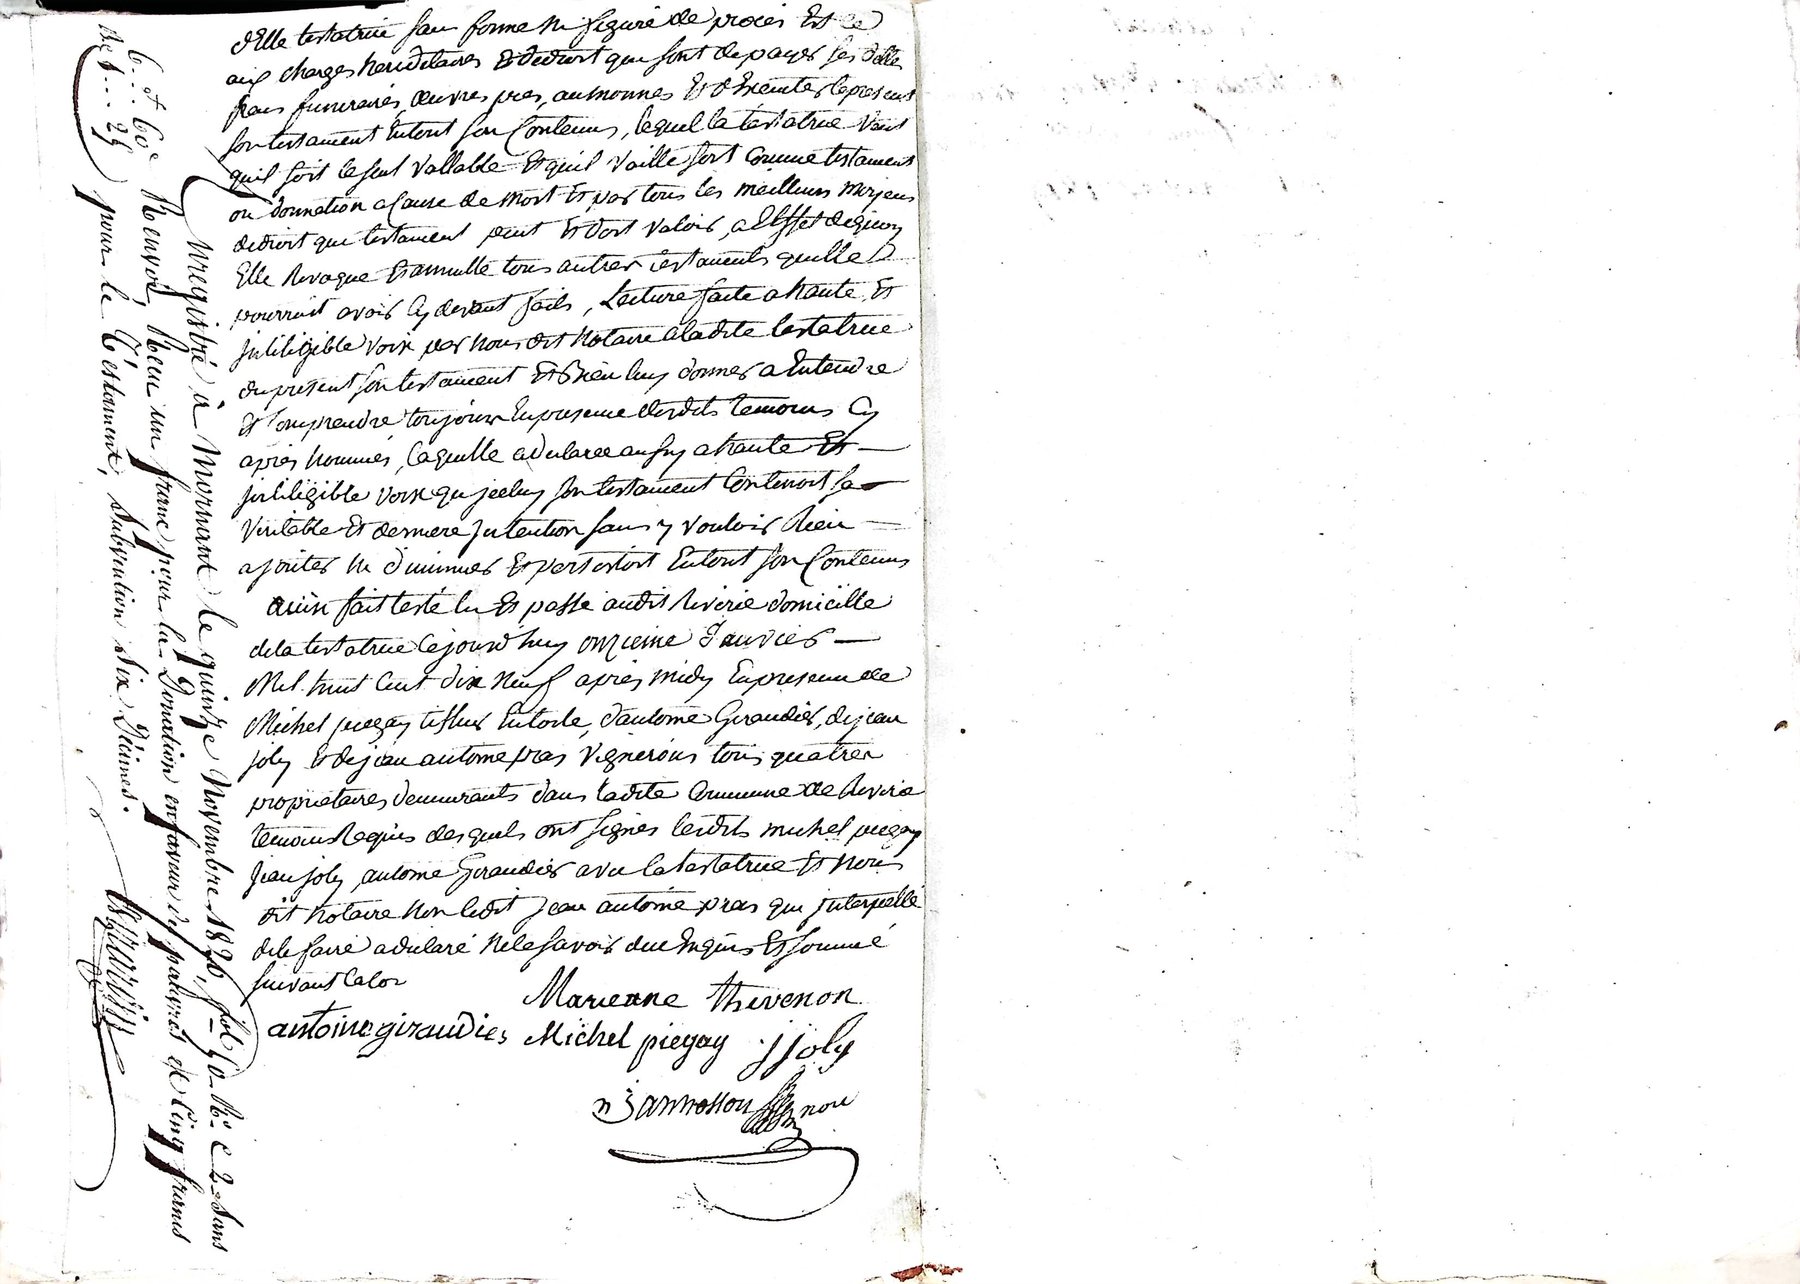 d'Elle testatrice sans forme ni figure de procès Et ce
aux charges hereditaires Et de droit qui sont de payer ses dettes
frais funeraires, œuvres pies, aumonnes Et d'Executer le present
son testament En tout son Contenus, lequel la testatrice veut
quil soit le seul vallable Et quil vaille soit comme testament
ou donnation a Cause de mort Et par tous les meilleurs moyens
de droit que testament peut Et doit valoir, a L'Effet de quoy
Elle Revoque Et annulle tous autres testaments quelle
pourroit avoir Cy devant faits, Lecture faite a haute Et
jntiligible voix par nous dit Notaire a ladite testatrice
du present son testament Et Bien luy donner a Entendre
Et Comprendre toujours En presence desdits temoins Cy
après Nommés, laquelle a declaree aussy a haute Et
jntiligible voix qu jceluy son testament Contenoit sa
Veritable Et derniere jntention sans y vouloir Rien
ajouter Ni diminuer Et persistoit En tout son Contenus
ainsi fait testé lu Et passé audit Riverie domicille
de la testatrice Cejourd'huy onzieme Janvier
Mil huit Cent dix Neuf après midy En presence de
Michel piegay tisseur En toile, d'antoine Giraudier, de jean
joly Et de jean antoine pras Vignerons tous quatres
proprietaires demeurants dans ladite Commune de Riverie
temoins Requis desquels ont signés lesdits michel piegay
Jean joly antoine Giraudier avec la testatrice Et Nous
dit Notaire Non ledit jean antoine pras qui jnterpellé
de le faire a declaré Ne le savoir duement Enquis Et sommé
suivant la loi
Marieane thevenon
antoine giraudier Michel piegay j joly
not
Enregistré à Mornant le quinze Novembre 1820, fol. 50 Ro C 2 Sans
Renvoi, Reçu un franc pour la Donation en faveur des pauvres de Cinq francs
pour le Testament, Subvention Six Décimes.